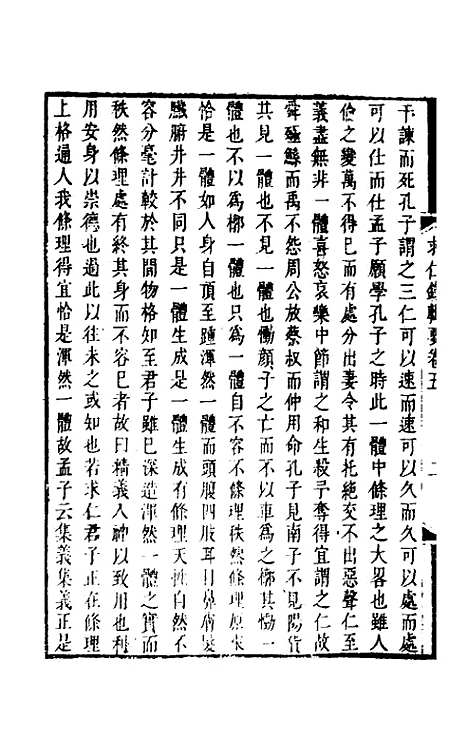 求仁錄輯要卷五
二
干諫而死孔子謂之三仁可以速而速可以久而久可以處而處
可以仕而仕孟子願學孔子之時此一體中條理之大畧也雖人
倫之變萬不得已而有處分出妻令其有托絶交不出惡聲仁至
義盡無非一體喜怒哀樂中節謂之和生殺予奪得宜謂之仁故
舜殛鯀而禹不怨周公放蔡叔而仲用命孔子見南子不見陽貨
其見一體也不見一體也慟顏子之亡而不以車爲之槨其慟一
體也不以爲槨一體也只爲一體自不容不條理秩然條理原來
恰是一體如人身自頂至踵渾然一體而頭腹四肢耳目鼻膚髮
臟腑井井不同只是一體生成是一體生成有條理天然自然不
容分毫計較於其間物格知至君子雖已深造渾然一體之實而
秩然條理處有終其身而不容已者故曰精義入神以致用也利
用安身以崇德也過此以往未之或知也若求仁君子正在條理
上格通人我條理得宜恰是渾然一體故孟子云集義集義正是